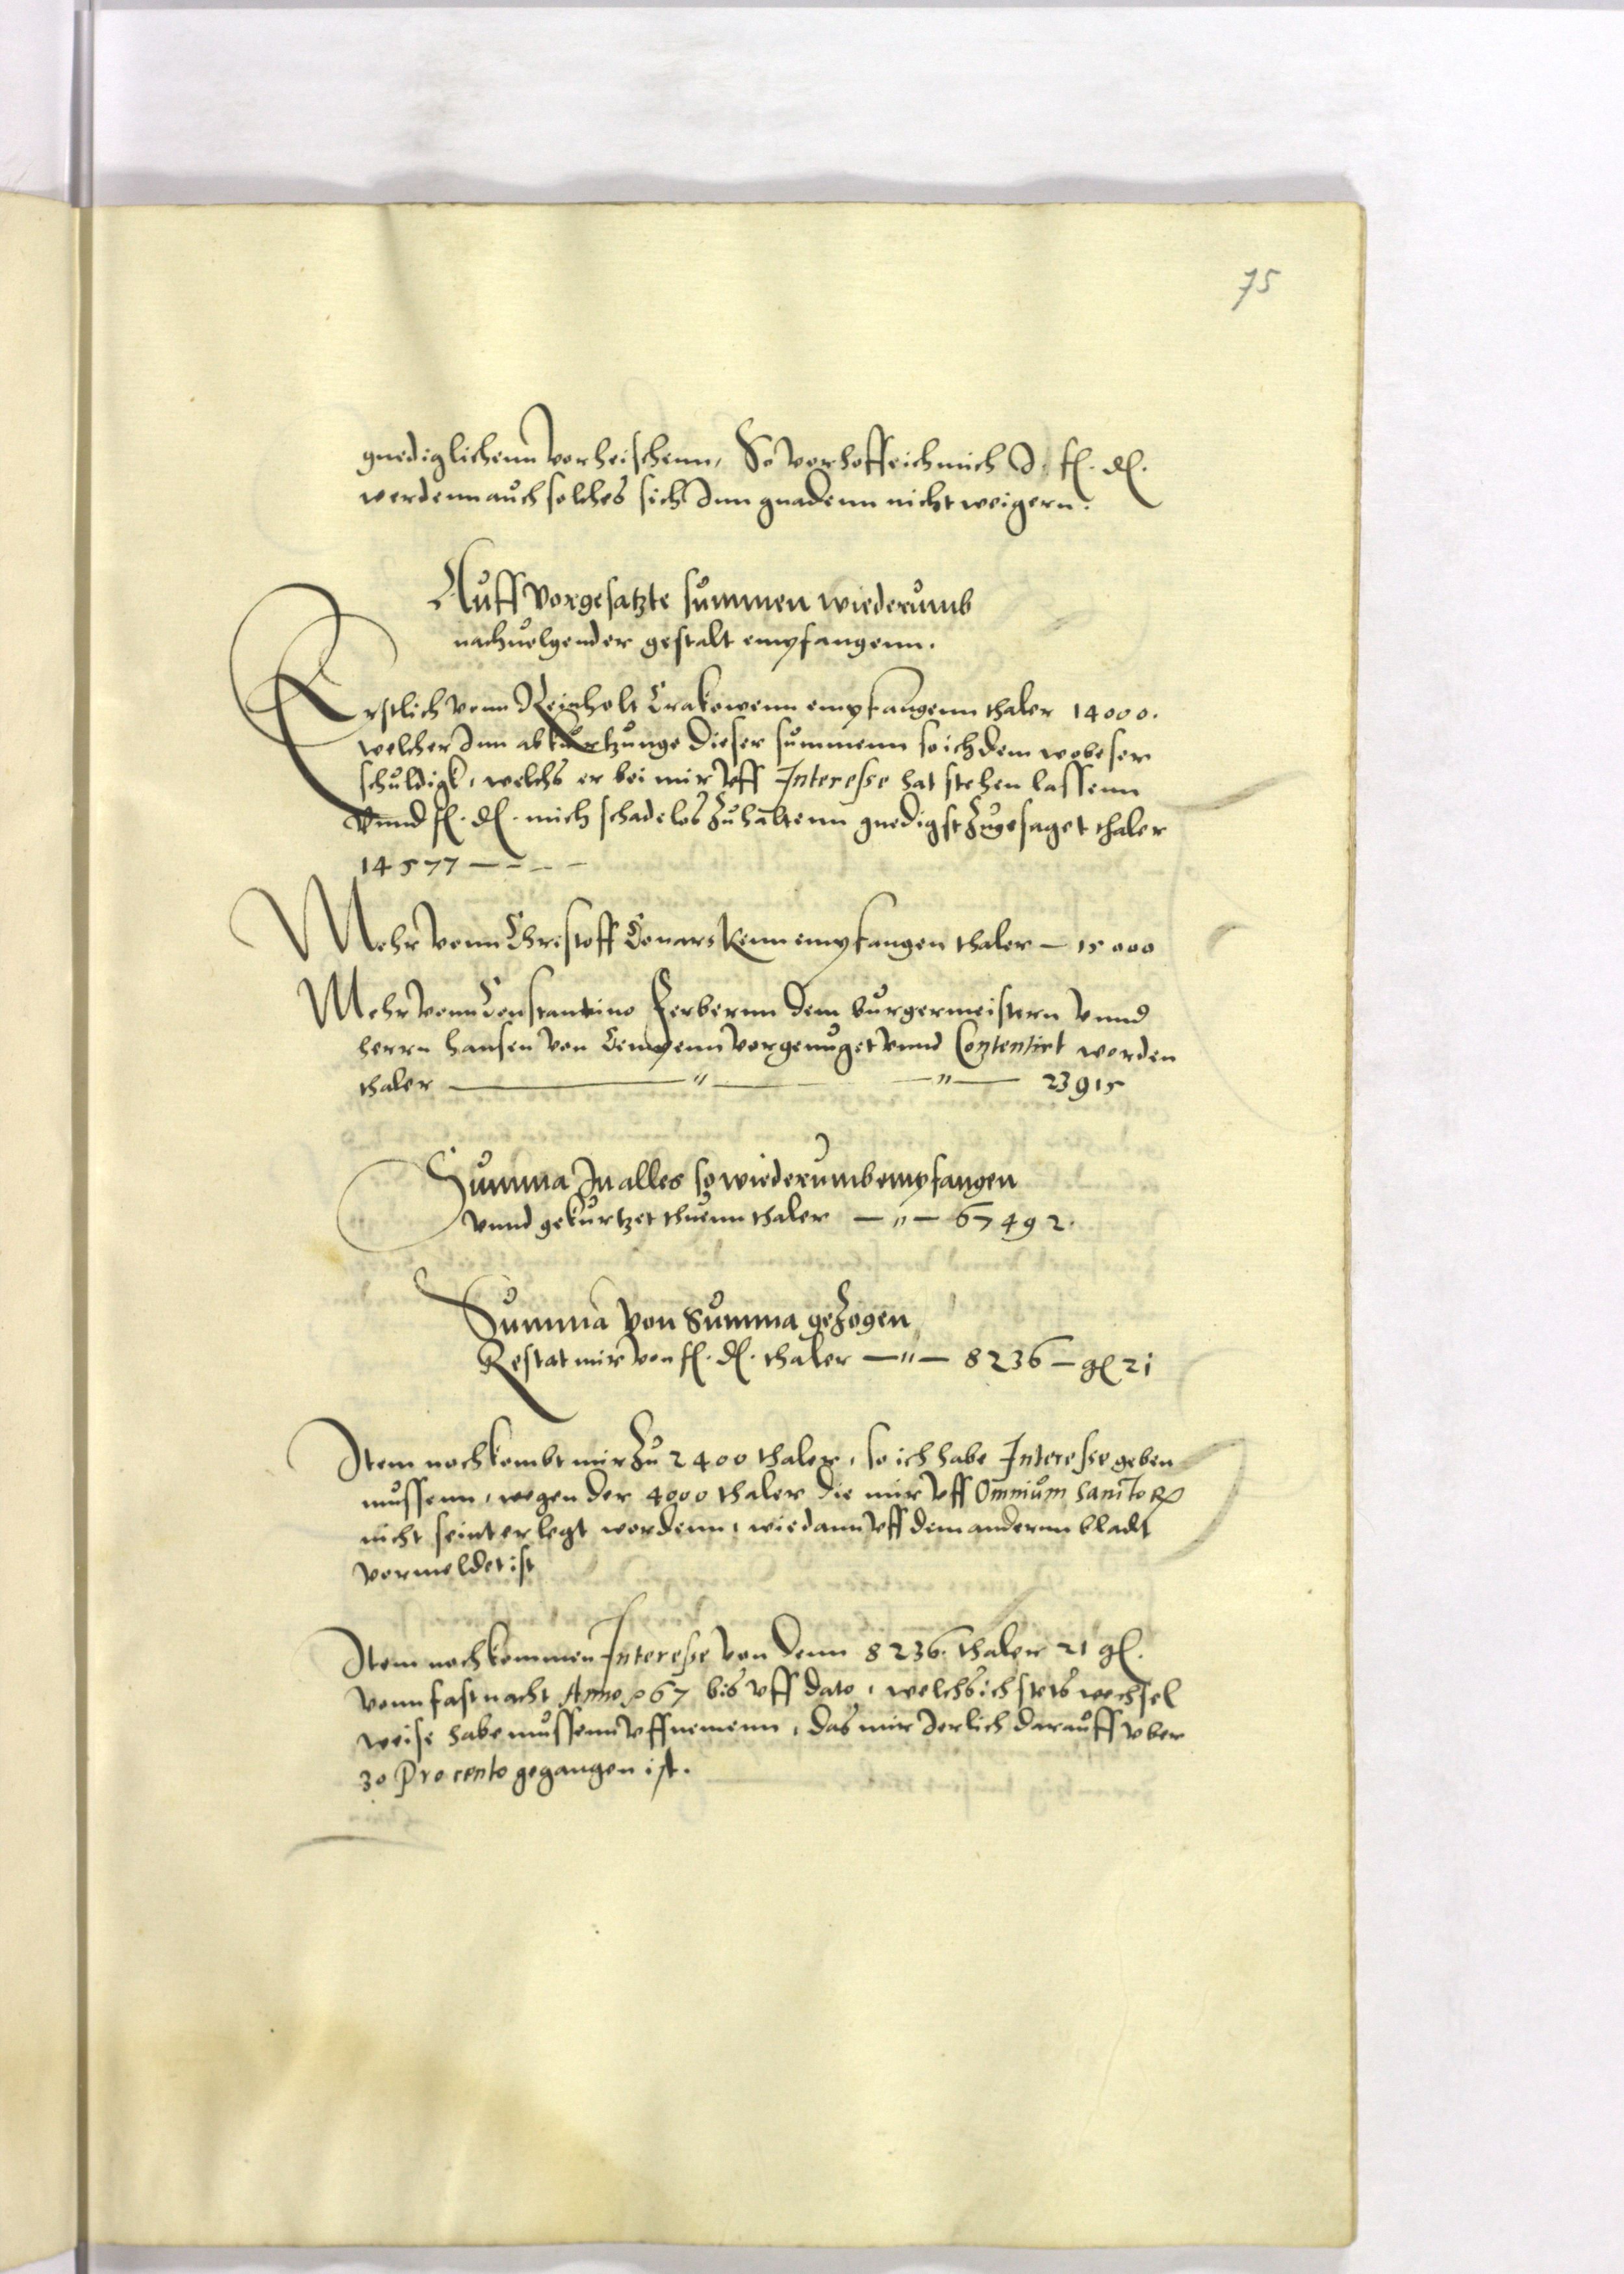 75
gnediglichenn vorheischenn, So vorhoffe ich mich J. f. d.
werdenn auch solches sich Inn gnadenn nicht weigern.
Auff vorgesatzte summen wiederumb
nachuolgender gestalt empfangenn.
Erstlich vonn Reinholt Crakowenn empfangenn thaler 14000.
welcher Inn abkurtzunge dieser summenn so ich dem wobeser
schuldigk, welchs er bei mir vff Interesse hat stehen lassenn
Vnnd f. d. mich schadelos zuhaltenn gnedigst zugesaget thaler
14577 — — — —
Mehr vonn Christoff Conarskenn empfangen thaler — 15000
Mehr vonn Constantino Ferbernn dem burgermeistern vnnd
herrn hansen von Kempenn vorgenuget vnnd Contentirt worden
thaler — " — — " — 23915
Summa In alles so wiederumb empfangen
vnnd gekurtzet thuenn thaler — " — 67492.
Summa von Summa gezogen
Restat mir von f. d. thaler — " — 8236 — gl 21
Item noch kombt mir zu 2400 thaler, so ich habe Interesse geben
mussenn, wegen der 4000 thaler die mir vff Omnium Sanctorum
nicht seint erlegt wordenn, wie dann vff dem andernn bladt
vormeldet ist
Item noch kommen Interesse von denn 8236. thaler 21 gl.
vonn fastnacht Anno 67 bis vff dato, welchs ich stets wechsel
weise habe mussenn vffnemenn, das mir Jerlich darauff vber
30 Pro cento gegangen ist.